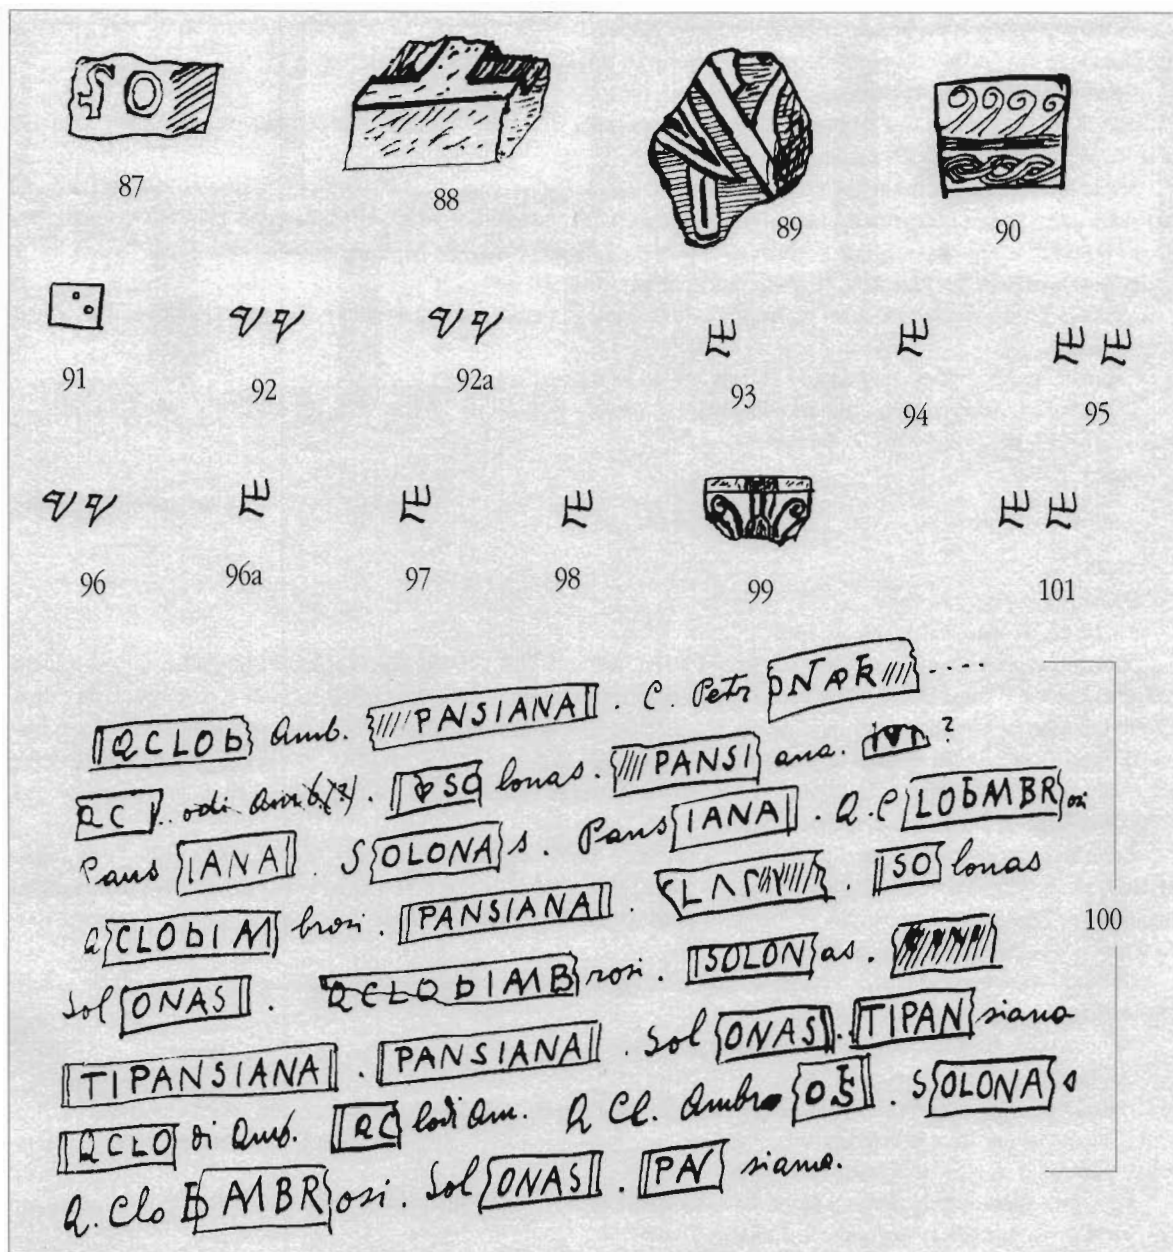 87 88 89 90
91 92 92a 93 94 95
96 96a 97 98 99 101
QCLOD Amb. PANSIANA . C. Petr ....
QC odi Amb(?) . SO lonas . PANSI ana. ?
Pans IANA . S OLONA s . Pans IANA . Q.C LODAMBR osi
Q CLODIAM brosi . PANSIANA . . SO lonas
Sol ONAS . QCLODIAMB rosi . SOLON as .
TIPANSIANA . PANSIANA . Sol ONAS . TIPAN siana
QCLO di Amb. QC lodi Am. Q Cl. Ambro . S OLONA s
Q. Clo D AMBR osi . Sol ONAS . PAN siana.
100